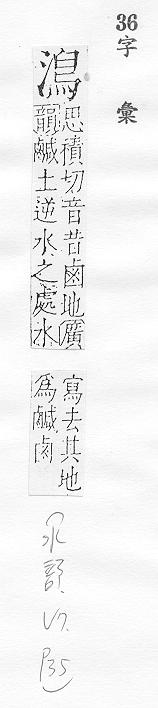 36字彙
潟
思積切音昔鹵地廣
韻鹹土逆水之處水
寫去其地
為鹹鹵
P35